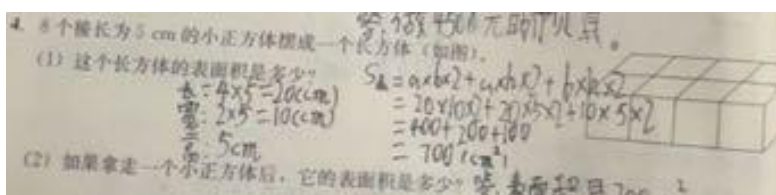 答:得 4500 元的
4. 8个棱长为5 cm的小正方体摆成一个长方体(如图)。
(1) 这个长方体的表面积是多少?
长:4×5=20(cm)
宽:2×5=10(cm)
高:5cm
S表=a×b×2+a×h×2+b×h×2
=20×10×2+20×5×2+10×5×2
=400+200+100
=700(cm²)
(2) 如果拿走一个小正方体后,它的表面积是多少?
答:表面积是700